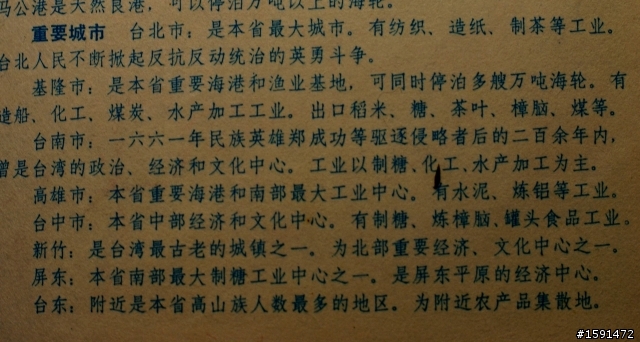 马公港是天然良港，可以停泊万吨以上的海轮。
重要城市 台北市：是本省最大城市。有纺织、造纸、制茶等工业。
台北人民不断掀起反抗反动统治的英勇斗争。
基隆市：是本省重要海港和渔业基地，可同时停泊多艘万吨海轮。有
造船、化工、煤炭、水产加工工业。出口稻米、糖、茶叶、樟脑、煤等。
台南市：一六六一年民族英雄郑成功等驱逐侵略者后的二百余年内，
曾是台湾的政治、经济和文化中心。工业以制糖、化工、水产加工为主。
高雄市：本省重要海港和南部最大工业中心。有水泥、炼铝等工业。
台中市：本省中部经济和文化中心。有制糖、炼樟脑、罐头食品工业。
新竹：是台湾最古老的城镇之一。为北部重要经济、文化中心之一。
屏东：本省南部最大制糖工业中心之一。是屏东平原的经济中心。
台东：附近是本省高山族人数最多的地区。为附近农产品集散地。
#1591472